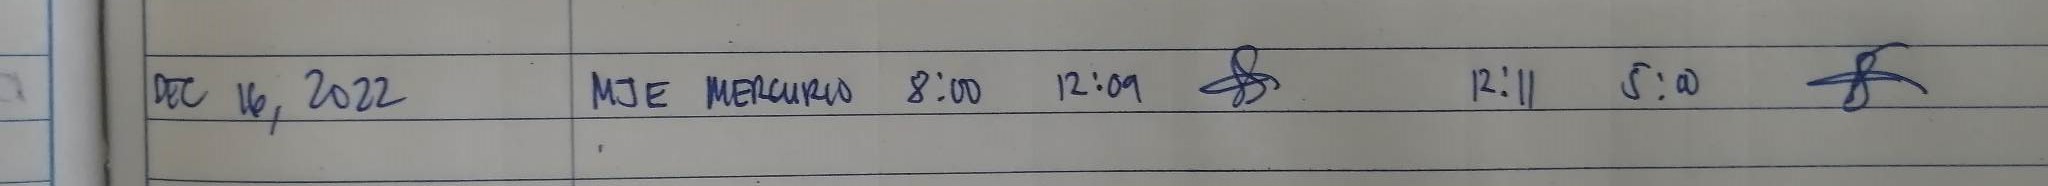 DEC 16, 2022 MJE MERCURIO 8:00 12:09 12:11 5:00